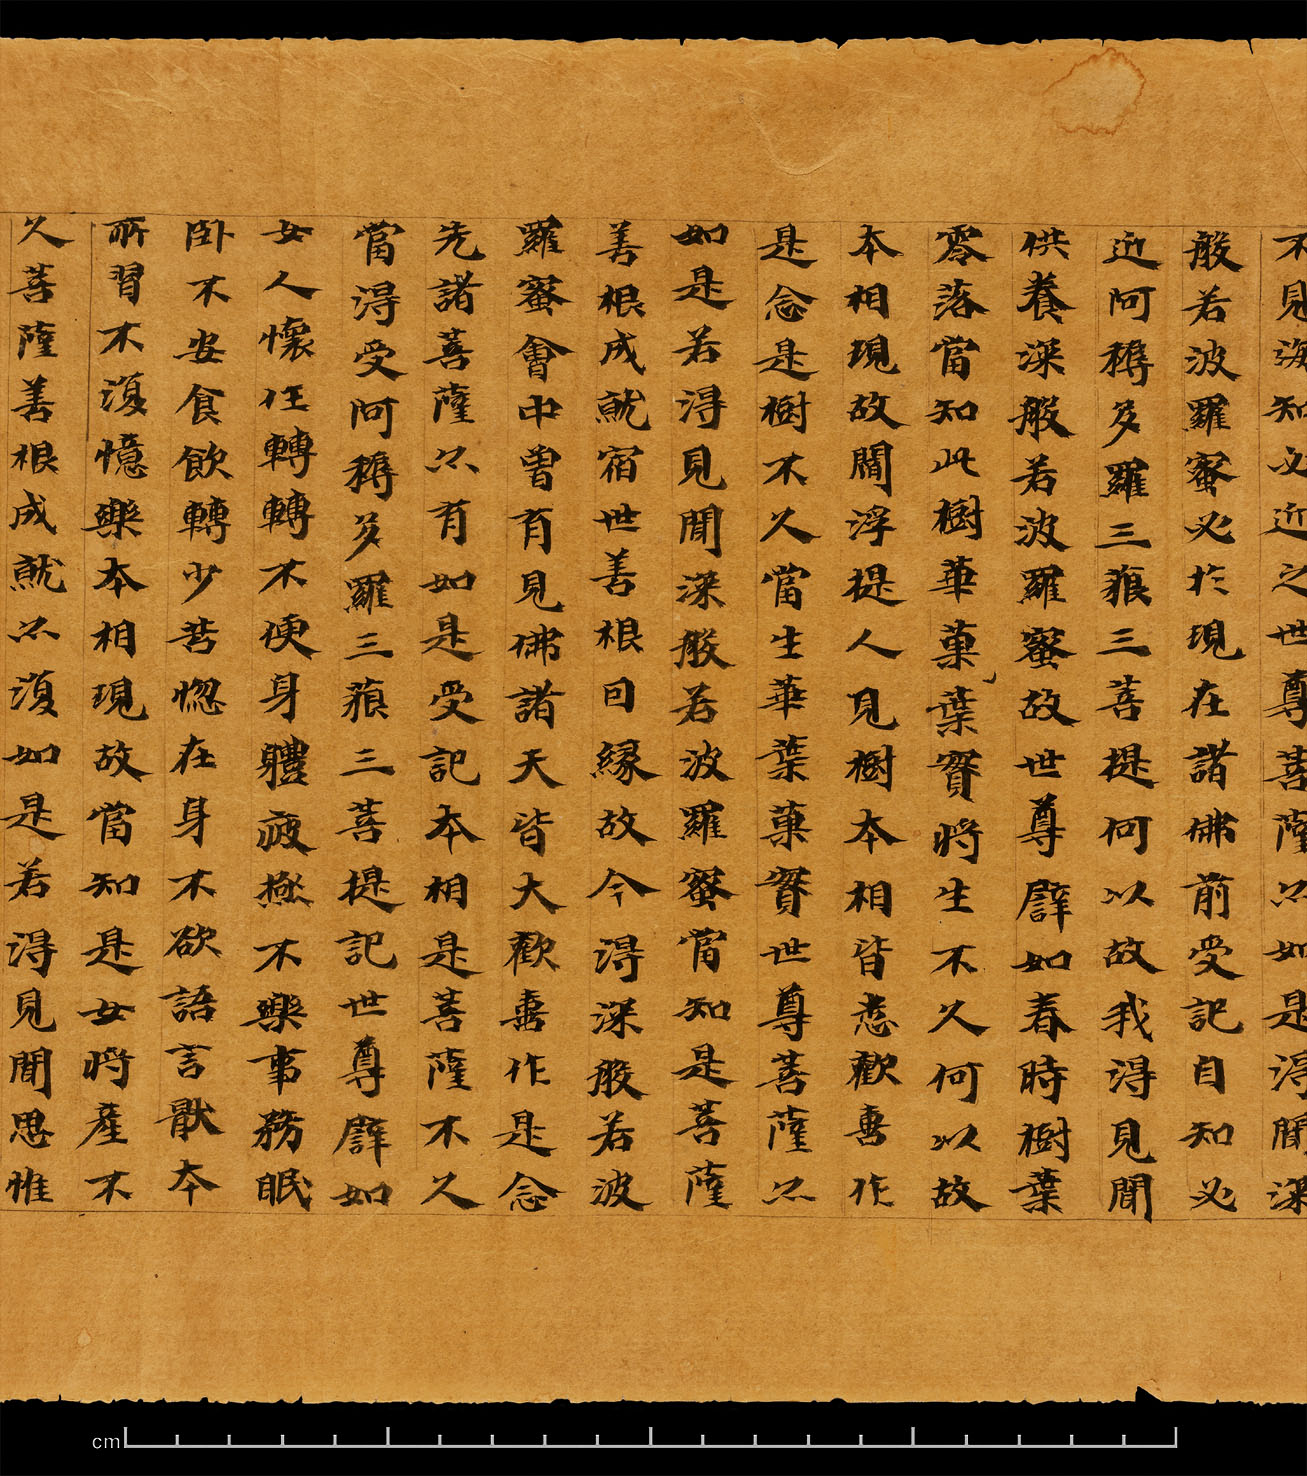 不見海知必近之世尊菩薩亦如是得聞深
般若波羅蜜必於現在諸佛前受記自知必
近阿耨多羅三藐三菩提何以故我得見聞
供養深般若波羅蜜故世尊譬如春時樹葉
零落當知此樹華菓葉實將生不久何以故
本相現故閻浮提人見樹本相皆悉歡喜作
是念是樹不久當生華葉菓實世尊菩薩亦
如是若得見聞深般若波羅蜜當知是菩薩
善根成就宿世善根因緣故今得深般若波
羅蜜會中曾有見佛諸天皆大歡喜作是念
先諸菩薩亦有如是受記本相是菩薩不久
當得受阿耨多羅三藐三菩提記世尊譬如
女人懷任轉轉不便身體疲極不樂事務眠
臥不安食飲轉少苦惱在身不欲語言猒本
所習不復憶樂本相現故當知是女將產不
久菩薩善根成就亦復如是若得見聞思惟